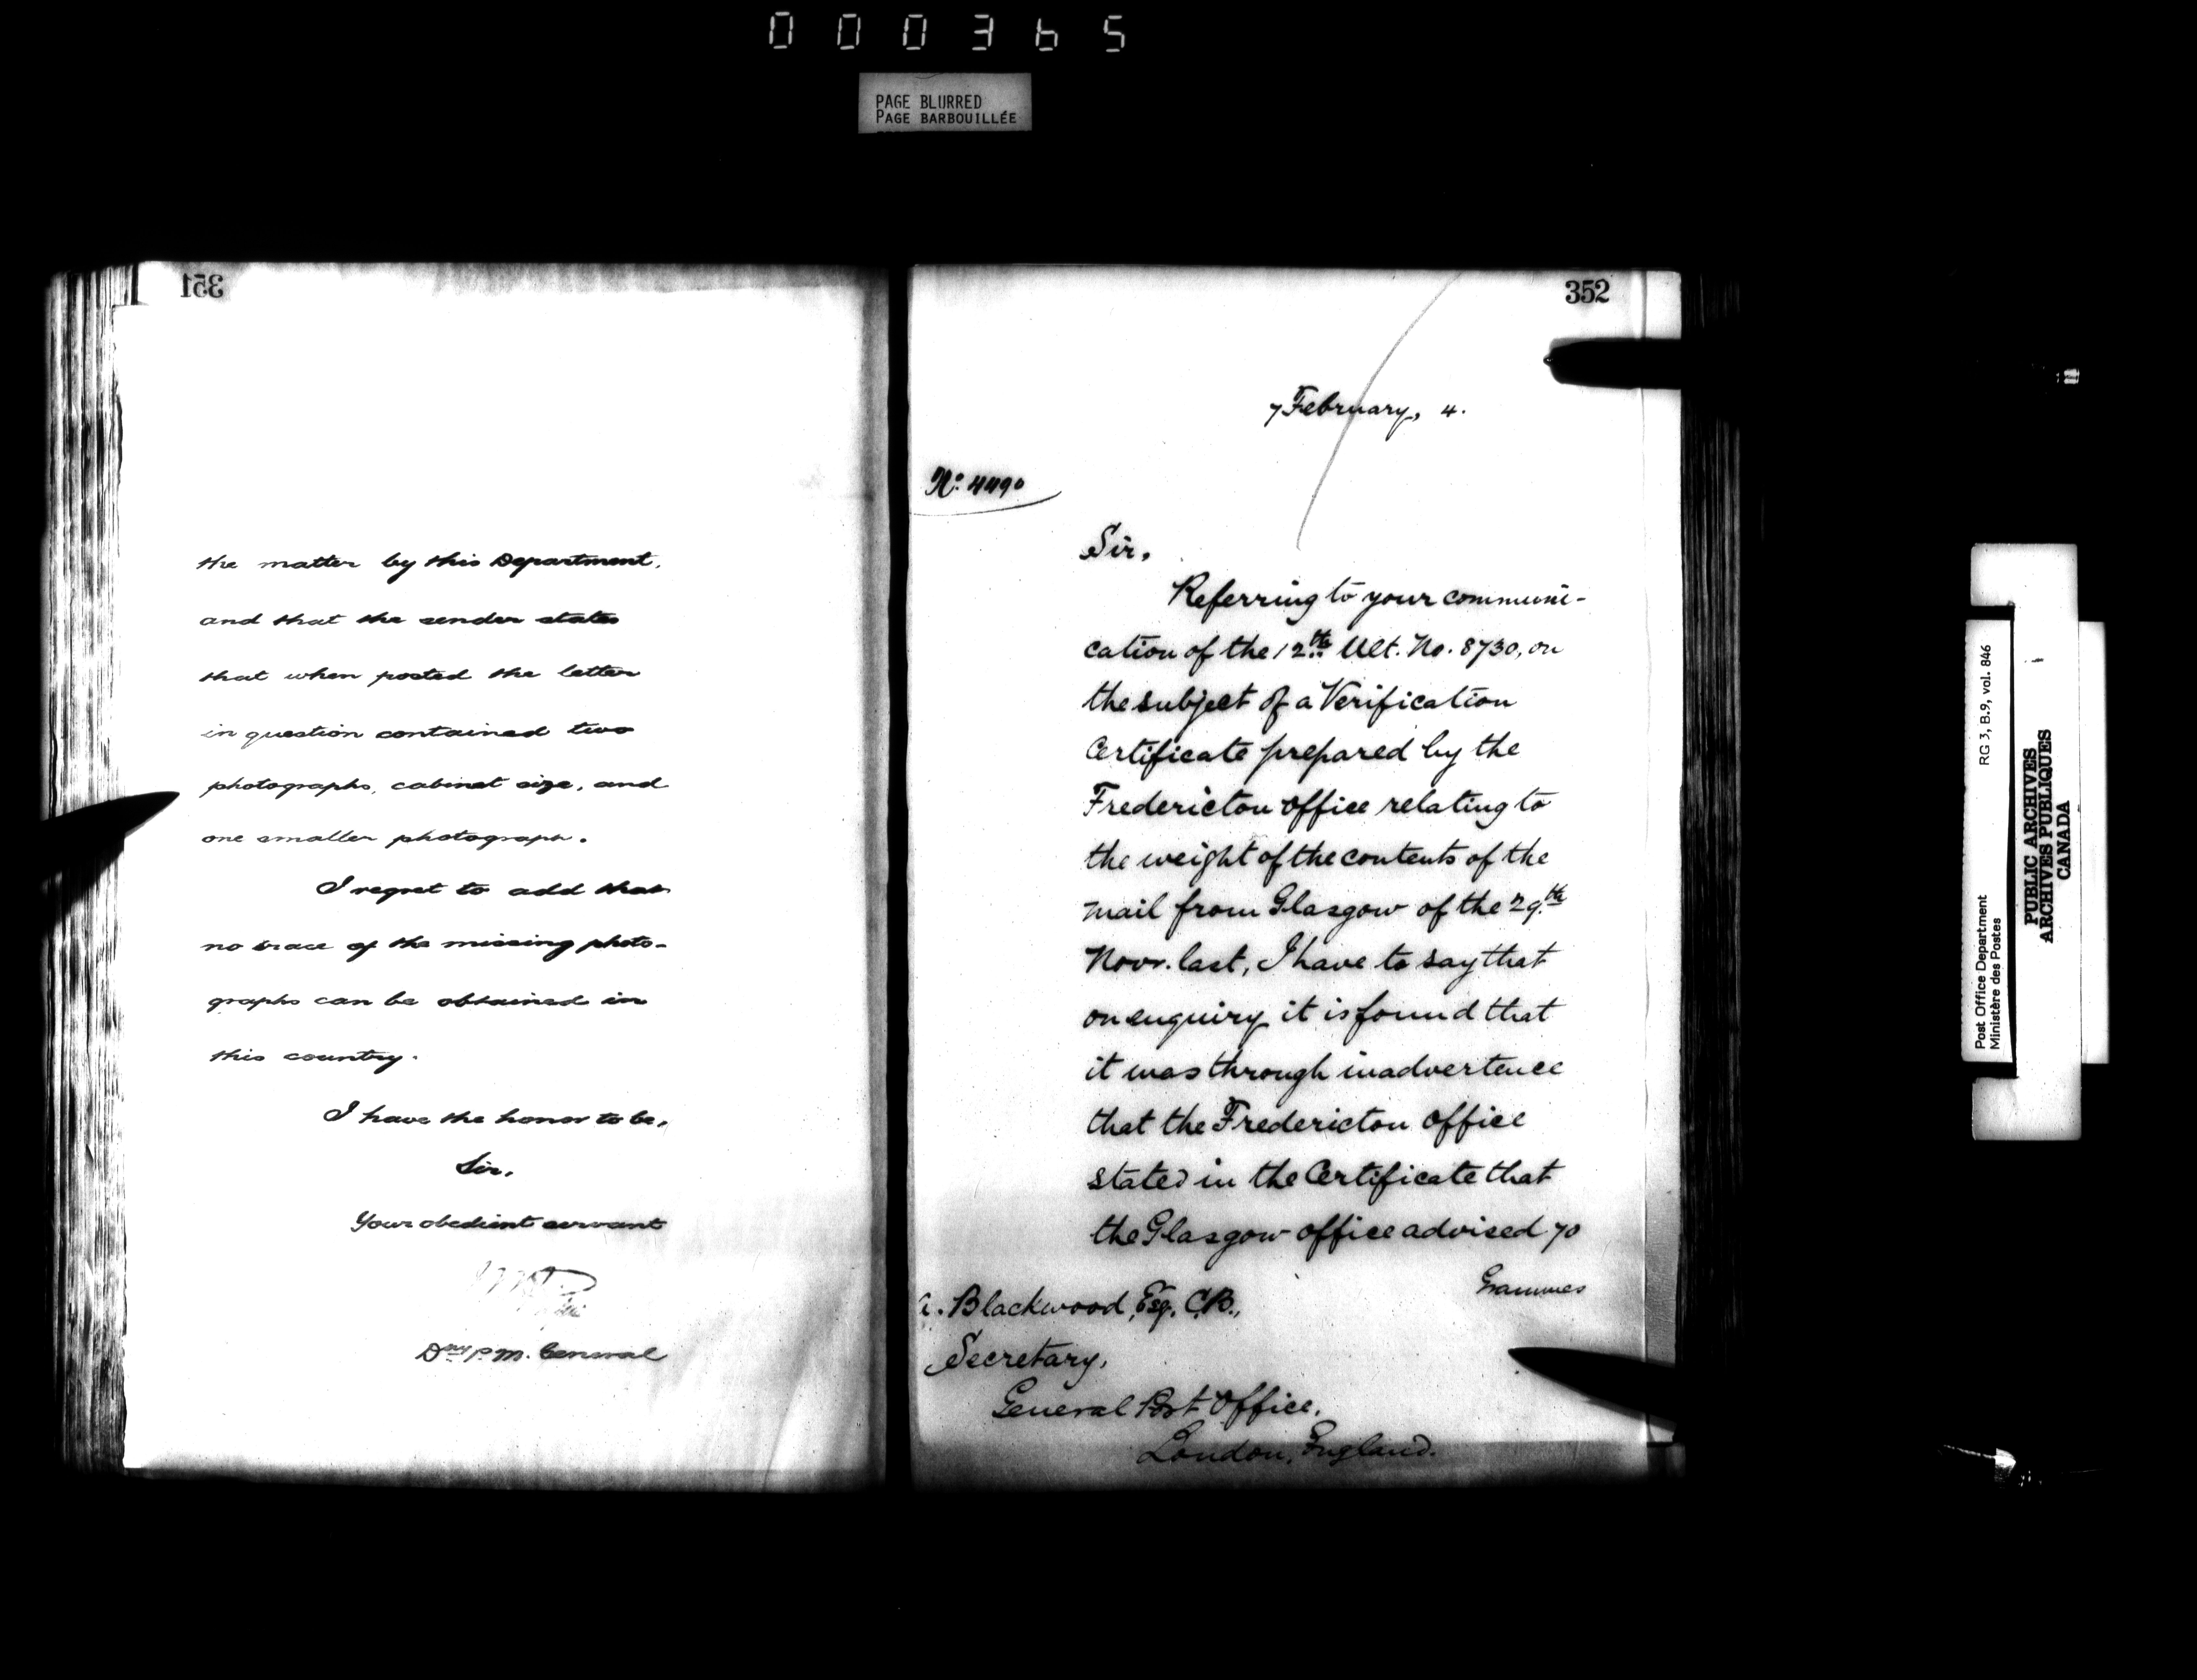 000365
PAGE BLURRED
PAGE BARBOUILLÉE
351
the matter by this Department,
and that the sender states
that when posted the letter
in question contained two
photographs, cabinet size, and
one smaller photograph.
I regret to add that
no trace of the missing photo-
graphs can be obtained in
this country.
I have the honor to be,
Sir,
Your obedient servant
Dny P.M. General
352
7 February, 4.
No. 4490
Sir,
Referring to your communi-
cation of the 12th Ult. No. 8730, on
the subject of a Verification
Certificate prepared by the
Fredericton office relating to
the weight of the contents of the
mail from Glasgow of the 29th
Novr. last, I have to say that
on enquiry it is found that
it was through inadvertence
that the Fredericton Office
stated in the Certificate that
the Glasgow office advised 70
Grammes
A. Blackwood, Esq. C.B.,
Secretary,
General Post Office,
London, England.
Post Office Department
Ministère des Postes
RG 3, B.9, vol. 846
PUBLIC ARCHIVES
ARCHIVES PUBLIQUES
CANADA